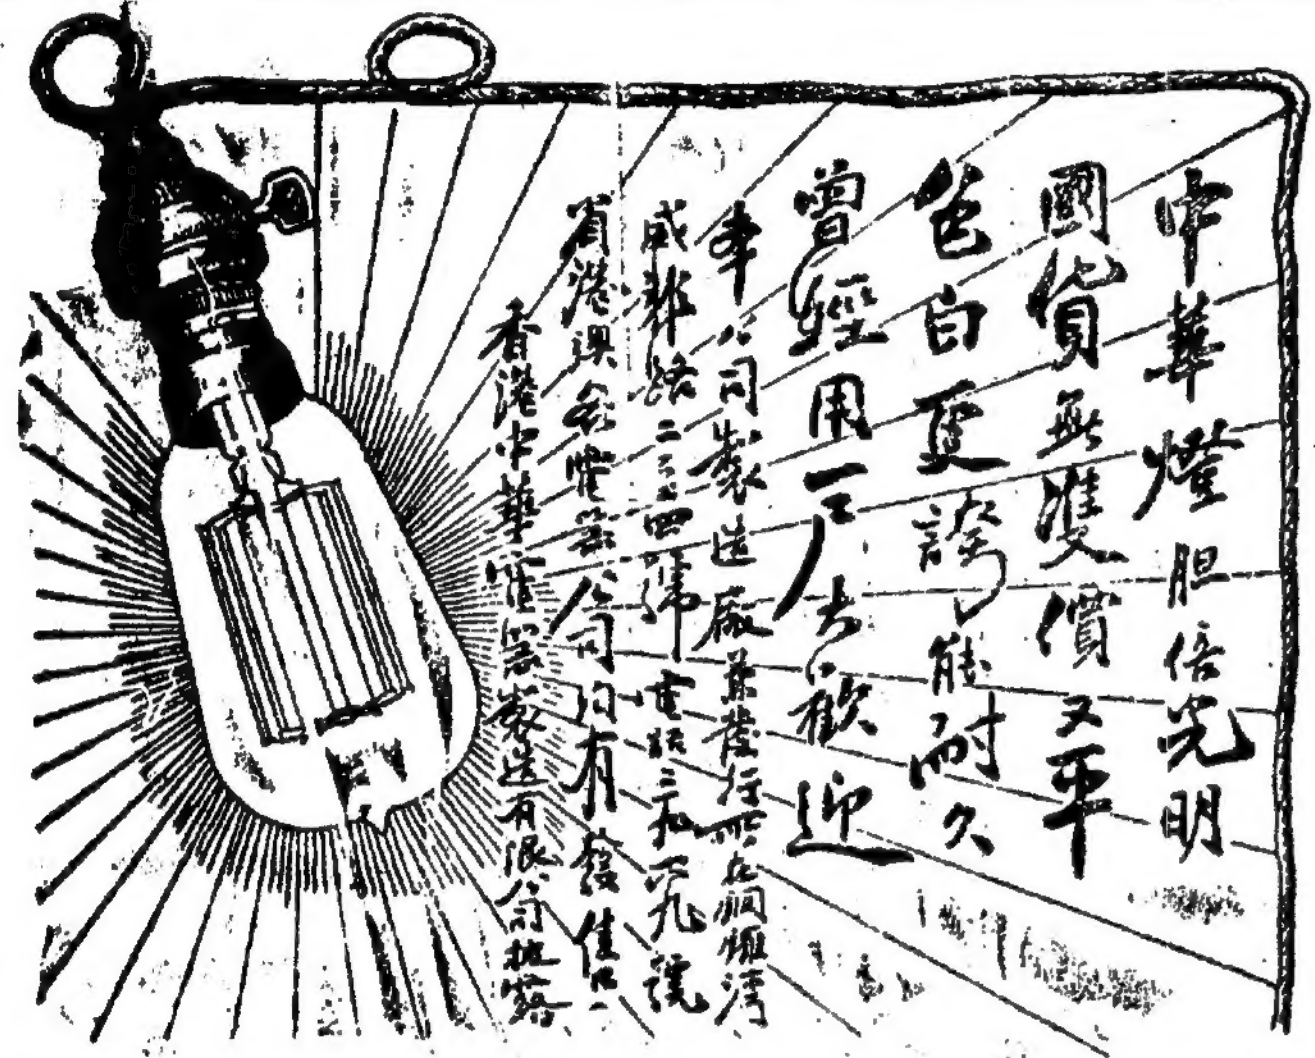 中華燈胆倍光明
國貨無雙價又平
色白更誇能耐久
曾經用大歡迎
本公司製造廠兼發行所在銅鑼灣
威菲路二三四號電話
省港澳各燈器公司均有發售
香港中華電器製造有限公司披露